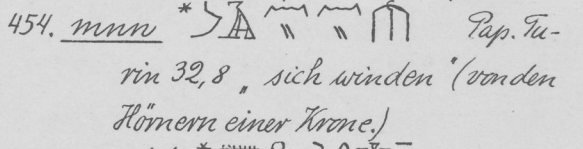 454. mnn * Pap. Tu-
rin 32,8 „sich winden“ (von den
Hörnern einer Krone.)